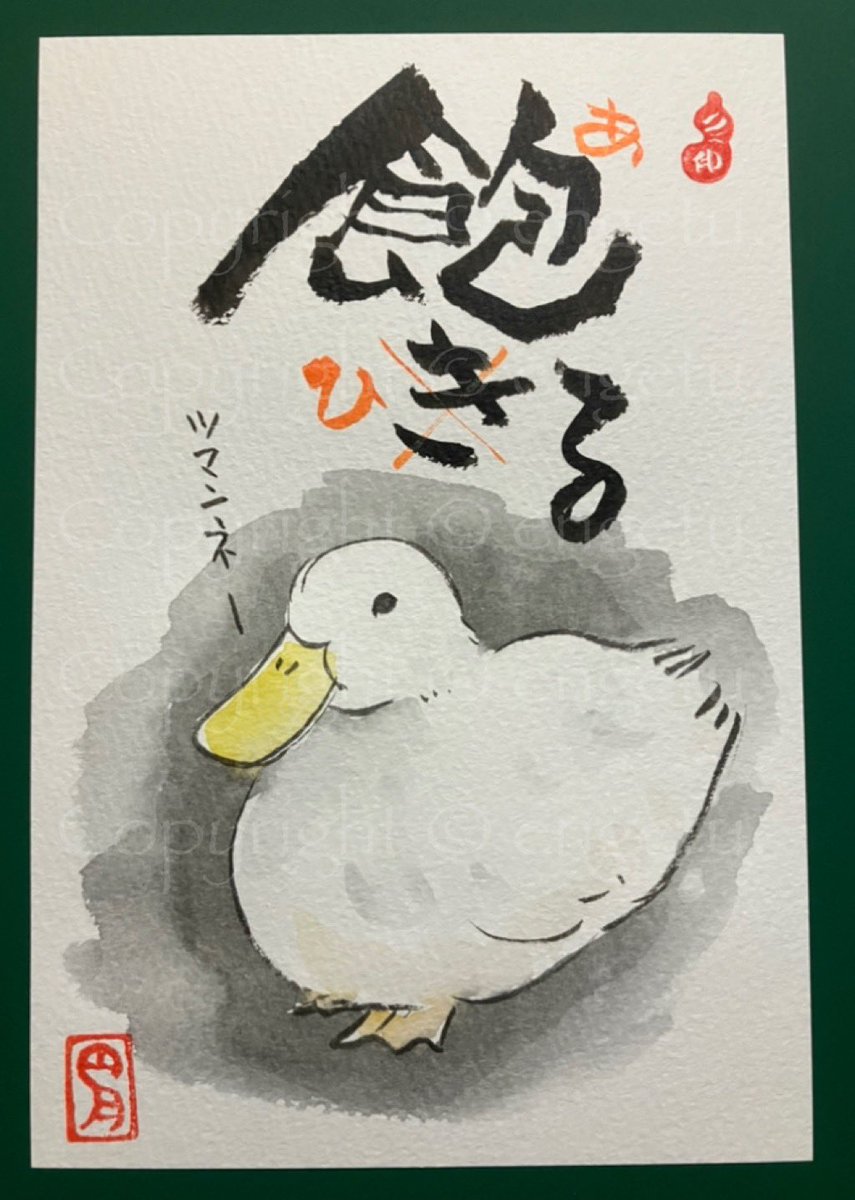 飽きる
あ
ひ
ツマンネー
Copyright © engetu
Copyright © engetu
Copyright © engetu
Copyright © engetu
Copyright © engetu